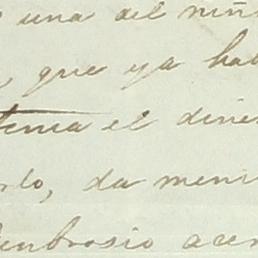 una del niñ
, que ya hab
tenia el dine
rlo, da meni
Ambrosio acer